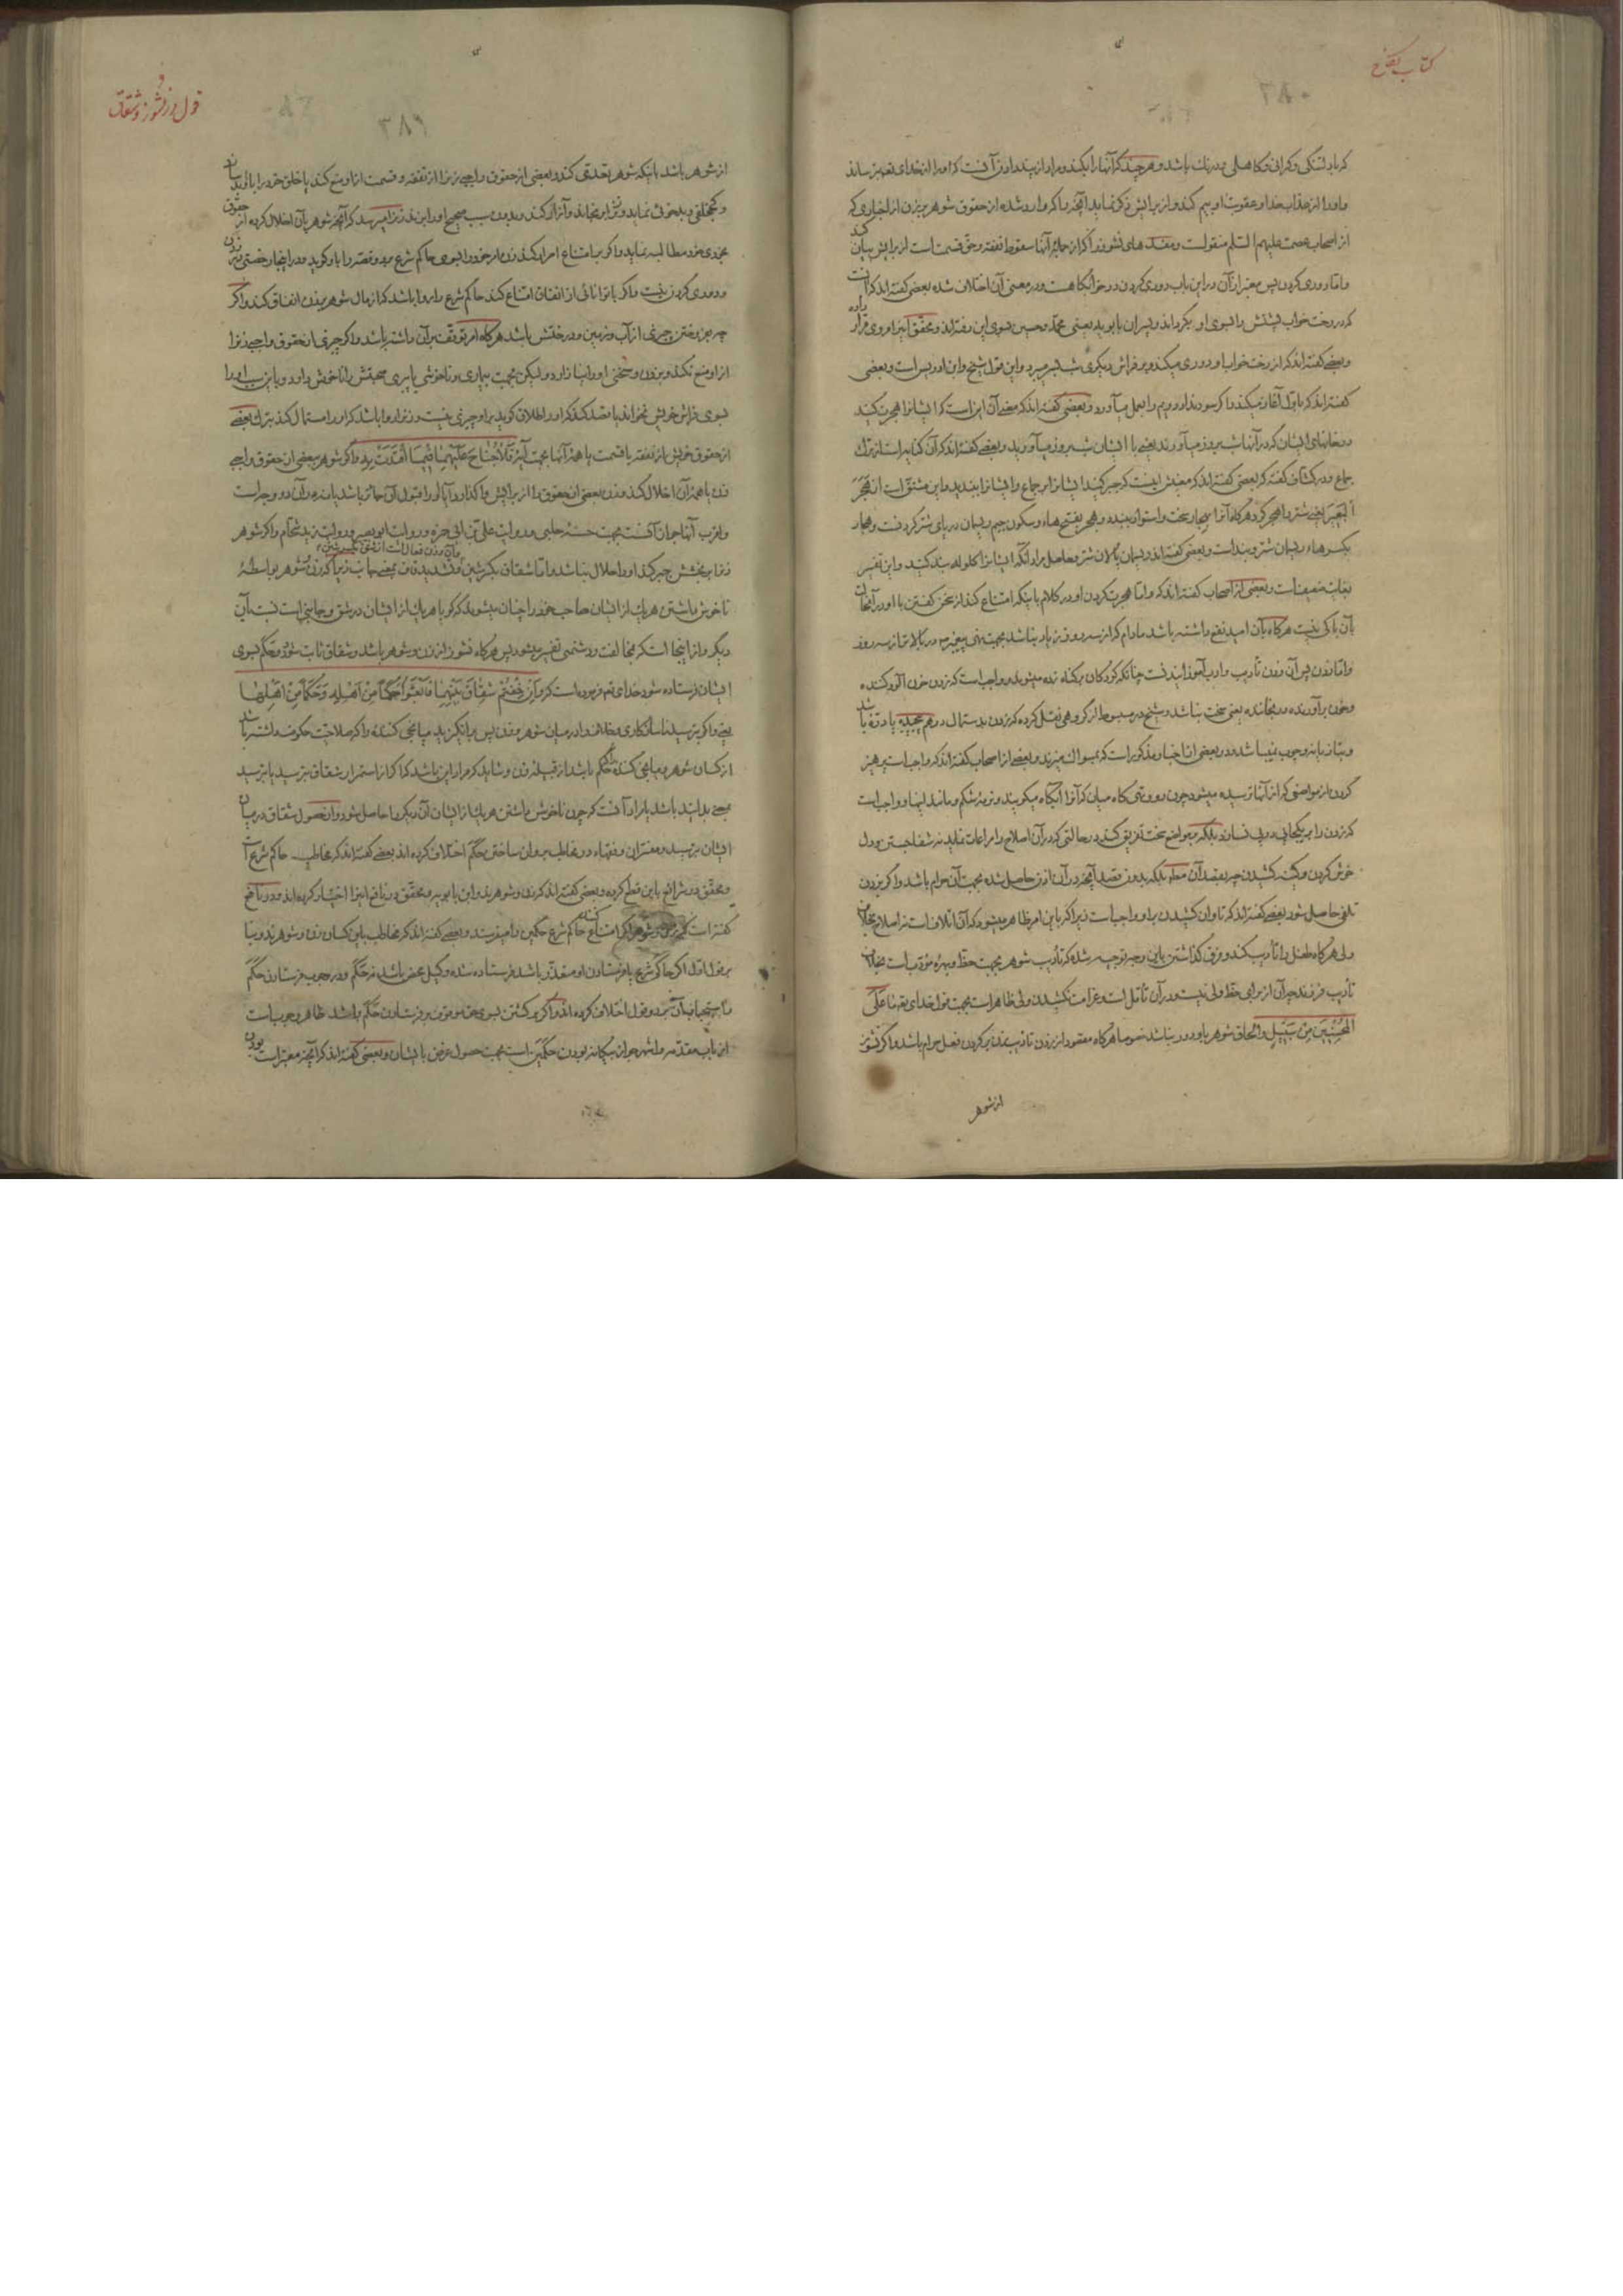 کتاب نکاح
۳۸۰
که با دلتنگی و گرانی و کاهلی و درنک باشد و هر چند که آنها را بکند و مراد از پند دادن آنست که او را از خدای تعالی بترساند
و او را از عذاب خدا و عقوبت او بیم کند و از برایش ذکر نماید آنچه را که وارد شده از حقوق شوهر بر زن از اخباری که
از اصحاب عصمت علیهم السلم منقولست و مفسدهای نشوز را که از جمله آنها سقوط نفقه و حق قسمت است از برایش بیان کند
و اما دوری کردن پس معتبر از آن در این باب دوری کردن در خوابگاهست و در معنی آن اختلاف شده بعضی گفته‌اند که آنست
که در رخت خواب پشتش را بسوی او بگرداند و پسران بابویه یعنی محمد و حسین بسوی این رفته‌اند و محقق اینرا مروی قرار داده
و بعضی گفته‌اند که از رخت خواب او دوری میکند و بر فراش دیگری شب بسر میبرد و این قول شیخ و ابن ادریس است و بعضی
گفته‌اند که باول آغاز میکند و اگر سود ندارد دویم را بعمل میآورد و بعضی گفته‌اند که معنی آن این است که ایشانرا هجرت کنید
در خانهای ایشان که در آنها شب بروز میآورند یعنی با ایشان شب بروز میآورید و بعضی گفته‌اند که آن کنایه است از ترک
جماع و در کشاف گفته که بعضی گفته‌اند که معنیش اینست که جبر کنید ایشانرا بر جماع و ایشانرا ببندید و این مشتق است از هجر
البعیر یعنی شتر را هجر کرد هرگاه آنرا بهجار سخت و استوار ببندد و هجر بفتح هاء و سکون جیم ریسمان در پای شتر کردنست و هجار
بکسر هاء ریسمان شتر و بند است و بعضی گفته‌اند ریسمان پالان شتر و حاصل مراد آنکه ایشانرا کلوله بند کنید و این تفسیر
بغایت ضعیف است و بعضی از اصحاب گفته‌اند که و اما هجرت کردن او در کلام باینکه امتناع کند از سخن گفتن با او در آنحالت
بآن باکی نیست هرگاه بآن امید نفع داشته باشد مادام که از سه روز زیاد نباشد بجهت نهی پیغمبر ص در بالاتر از سه روز
و اما زدن پس آن زدن تأدیب و ادب آموزانیدنست چنانکه کودکان بر گناه زده میشوند و واجب است که زدن خون آلود کننده
و خون برآورنده و رنجاننده یعنی سخت نباشد و شیخ در مبسوط از گروهی نقل کرده که زدن بدستمال درهم پیچیده یا دره باشد
و بتازیانه و چوب نمیباشد و در بعضی از اخبار مذکور است که بمسواک میزند و بعضی از اصحاب گفته‌اند که واجبست پرهیز
کردن از مواضعی که از آنها ترسیده میشود چون رو و تهی گاه میان که آنرا آبگاه میگویند و نرمه شکم و مانند اینها و واجب است
که زدن را بر یکجای پی در پی نرساند بلکه بمواضع سخت تفریق کند در حالتی که در آن اصلاح را مراعات نماید نه شفا جستن و دل
خوش کردن و کینه کشیدن چه بقصد آن مطلقا بلکه بدون قصد آنچه در آن اذن حاصل شده بجهت آن حرام باشد و اگر بزدن
تلفی حاصل شود بعضی گفته‌اند که تاوان کشیدن بر او واجب است زیرا که باین امر ظاهر میشود که آن اتلاف است نه اصلاح بخلاف
ولی هرگاه طفل را تأدیب کند و فرق گذاشتن باین وجه توجیه شده که تأدیب شوهر بجهت حظ و بهره خود است بخلاف
تأدیب فرزند چه آن از برای حظ ولی نیست و در آن تأمل است و غرامت نکشیدن ولی ظاهر است بجهت قول خدای تعالی ما علی
المحسنین من سبیل و الحاق شوهر باو دور نباشد خصوصا هرگاه مقصود از زدن تادیب زن بر کردن فعل حرام باشد و اگر نشوز
از شوهر
قول در نشوز و شقاق
۳۸۹
از شوهر باشد باینکه شوهر تعدی کند و بعضی از حقوق واجبی زنرا از نفقه و قسمت از او منع کند یا خلق خود را با او بد سازد
و کجخلقی و بدخوئی نماید و زنرا برنجاند و آزار کند و بدون سبب صحیح او را بزند زنرا میرسد که آنچه شوهر بآن اخلال کرده از حقوق
بجدی خود مطالبه نماید و اگر با امتناع اصرار کند زن امر خود را بسوی حاکم شرع برد و قصه را باو گوید و در اینجا رخصتی در زدن
و دوری کردن نیست و اگر با توانائی از انفاق امتناع کند حاکم شرع را روا باشد که از مال شوهر بزن انفاق کند و اگر
چه بفروختن چیزی از آب و زمین و درختش باشد هرگاه امر توقف بر آن داشته باشد و اگر چیزی از حقوق واجبی زنرا
از او منع نکند و بزدن و سختی او را نیازارد و لیکن بجهت بیماری و ناخوشی یا پیری صحبتش را ناخوش دارد و باین سبب او را
بسوی فراش خویش نخواند یا قصد کند که او را طلاق گوید بر او چیزی نیست و زنرا روا باشد که او را استمال کند بترک بعضی
از حقوق خویش از نفقه یا قسمت یا همه آنها بجهت آیه فلا جناح علیهما فیما افتدت به و اگر شوهر ببعضی از حقوق واجبی
زن یا همه آن اخلال کند و زن بعضی از حقوق را از برایش واگذارد آیا او را قبول آن جائز باشد یا نه در آن دو وجه است
و اقرب آنها جواز آنست بجهت حسنه حلبی و روایت علی بن ابی حمزه و روایت ابو بصیر و روایت زید شحام و اگر شوهر
زنرا ببخشش جبر کند او را حلال نباشد و اما شقاق بکسر شین و تشدید قاف بمعنی جانب زیرا که زن و شوهر بواسطه
ناخوش داشتن هر یک از ایشان صاحب خود را چنان میشوند که گویا هر یک از ایشان در شق و جانبی است نسبت بآن
دیگر و از اینجا است که بمخالفت و دشمنی تفسیر میشود پس هرگاه نشوز از زن و شوهر باشد و شقاق ثابت شود دو حکم بسوی
ایشان فرستاده شود خدای تعالی فرموده است که و ان خفتم شقاق بینهما فابعثوا حکما من اهله و حکما من اهلها
یعنی و اگر بترسید ناسازکاری و مخالفت را در میان شوهر و زن پس برانگیزید میانجی کننده را که صلاحیت حکومت داشته باشد
از کسان شوهر و میانجی کننده حکم باشد از قبیله زن و شاید که مراد این باشد که اگر از استمرار شقاق بترسید یا بترسید
بمعنی بدانید باشد یا مراد آنست که چون ناخوش داشتن هر یک از ایشان آن دیگر را حاصل شود و از حصول شقاق در میان
ایشان بترسید و مفسران و فقهاء در مخاطب بروان ساختن حکم اختلاف کرده‌اند بعضی گفته‌اند که مخاطب حاکم شرع است
و محقق در شرائع باین قطع کرده و بعضی گفته‌اند که زن و شوهرند و ابن بابویه و محقق در نافع اینرا اختیار کرده‌اند و در نافع
گفته است که زن و شوهر اگر امتناع کنند حاکم شرع حکمین را میفرستد و بعضی گفته‌اند که مخاطب باین کسان زن و شوهرند و بنا
بر قول اول اگر حاکم شرع یا فرستادن او متعذر باشد فرستاده شده وکیل محض باشد نه حکم و در وجوب فرستادن حکم
یا استحباب آن بر دو قول اختلاف کرده‌اند و اگر برگشتن بسوی حق موقوف بر فرستادن حکم باشد ظاهر وجوب است
از باب مقدمه و اشهر جواز بیگانه بودن حکمین است بجهت حصول غرض بایشان و بعضی گفته‌اند که آنچه معتبر است بودن